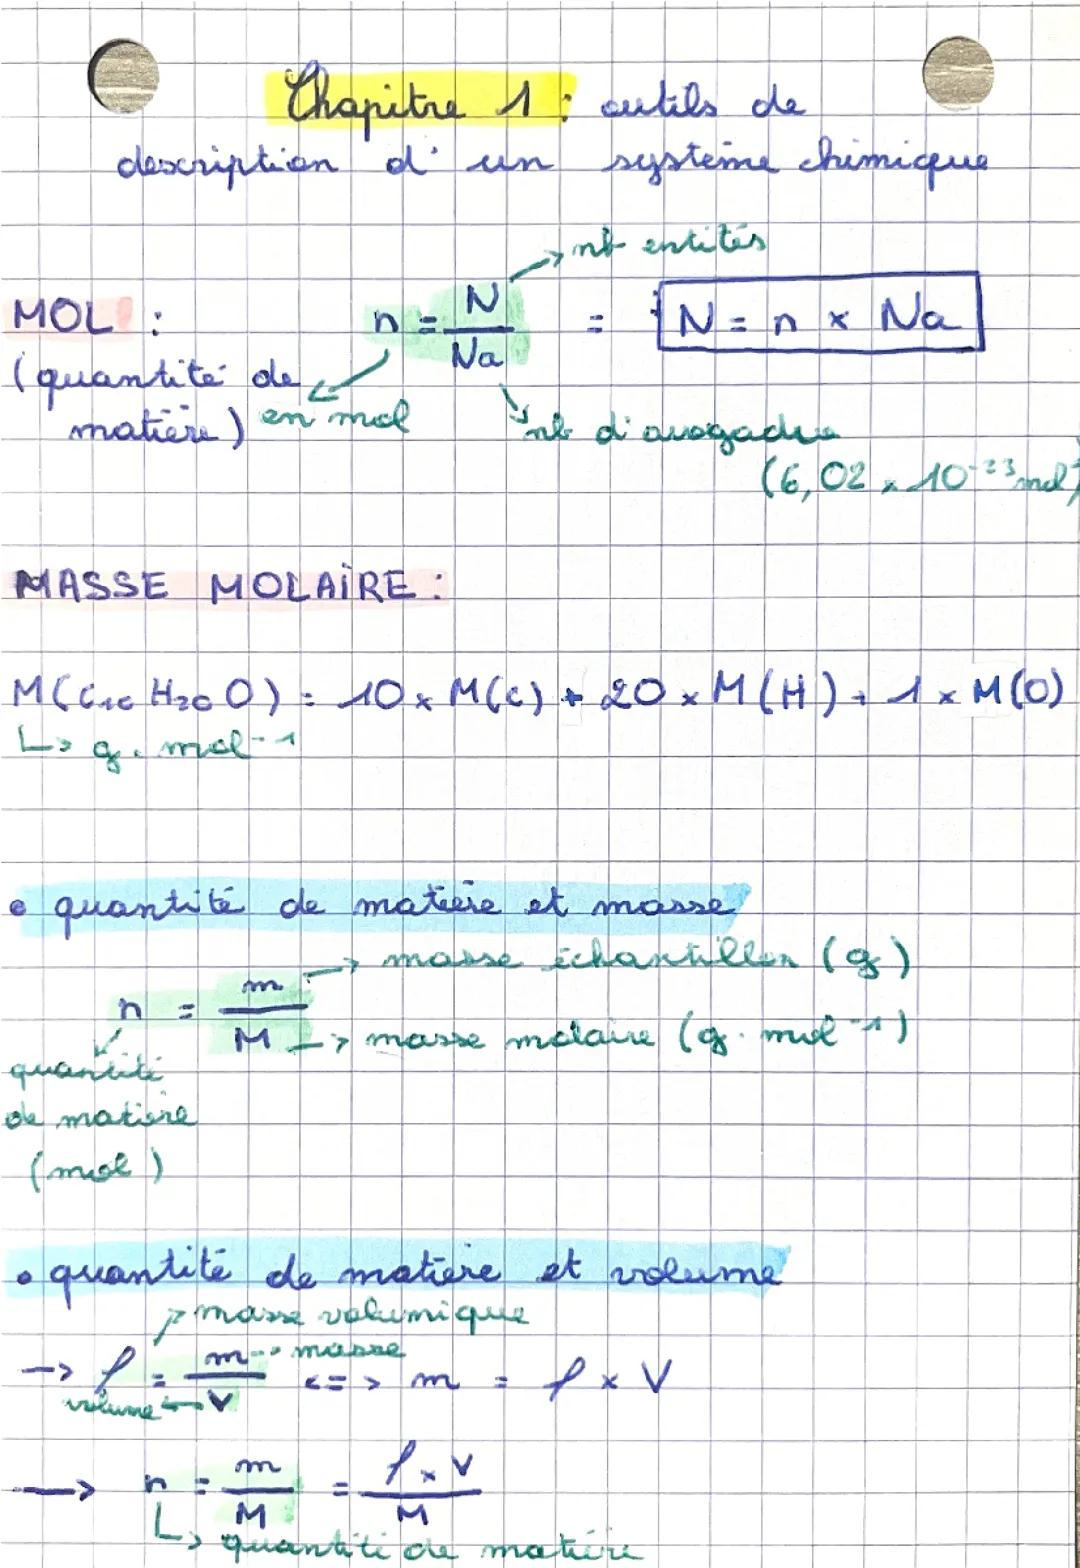 Chapitre 1 : outils de
description d'un système chimique
nb entités
MOL : n = N/Na = N = n x Na
(quantité de
matière) en mol nb d'avogadro
(6,02 x 10-23 mol
MASSE MOLAIRE :
M(C10 H20 O) = 10 x M(C) + 20 x M(H) + 1 x M(O)
↳ g. mol-1
• quantité de matière et masse
masse échantillon (g)
n = m/M
masse molaire (g. mol-1)
quantité
de matière
(mol)
• quantité de matière et volume
masse volumique
masse
→ ρ = m/V <=> m = ρ x V
volume
→ n = m/M = ρ x V/M
↳ quantité de matière